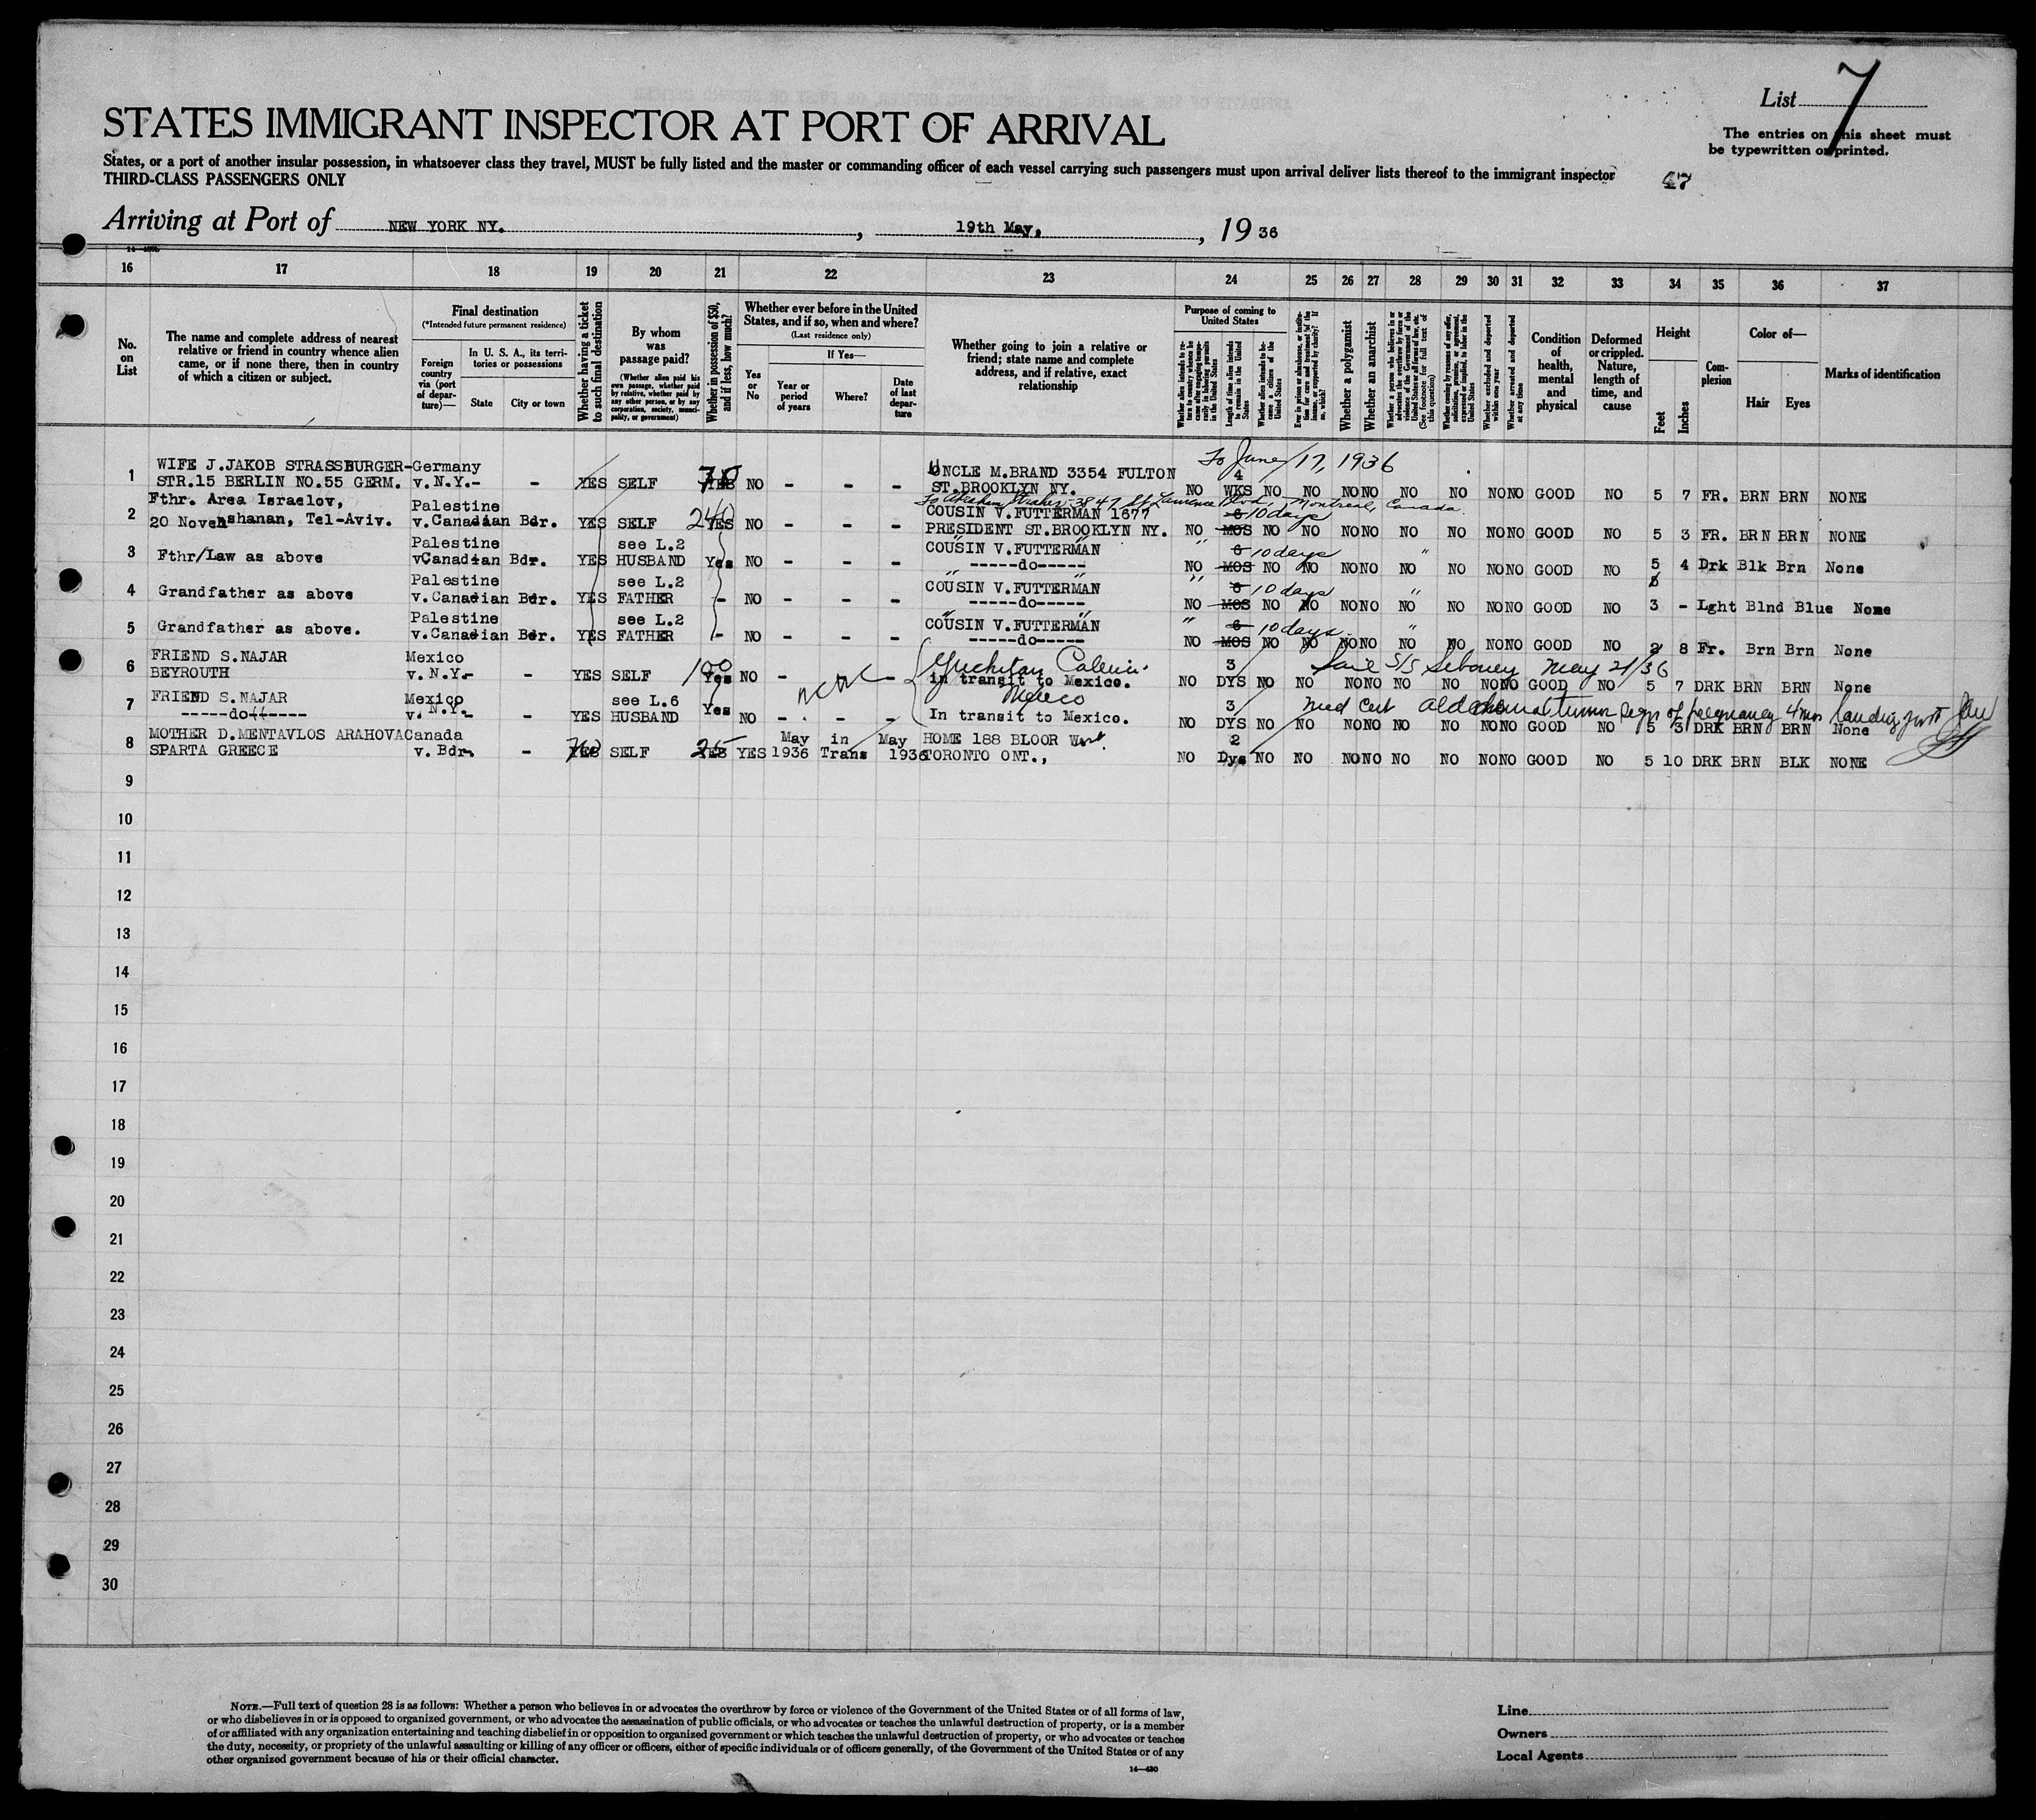 List 7
The entries on this sheet must
be typewritten or printed.
STATES IMMIGRANT INSPECTOR AT PORT OF ARRIVAL
States, or a port of another insular possession, in whatsoever class they travel, MUST be fully listed and the master or commanding officer of each vessel carrying such passengers must upon arrival deliver lists thereof to the immigrant inspector
THIRD-CLASS PASSENGERS ONLY
47
Arriving at Port of NEW YORK NY. , 19th May, , 19 36
16 17 18 19 20 21 22 23 24 25 26 27 28 29 30 31 32 33 34 35 36 37
No. on List
The name and complete address of nearest relative or friend in country whence alien came, or if none there, then in country of which a citizen or subject.
Final destination
(*Intended future permanent residence)
Foreign country via (port of departure)—
In U. S. A., its territories or possessions
State
City or town
Whether having a ticket to such final destination
By whom was passage paid?
(Whether alien paid his own passage, whether paid by relative, whether paid by any other person, or by any corporation, society, municipality, or government)
Whether in possession of $50, and if less, how much?
Whether ever before in the United States, and if so, when and where?
(Last residence only)
Yes or No
If Yes—
Year or period of years
Where?
Date of last departure
Whether going to join a relative or friend; state name and complete address, and if relative, exact relationship
Purpose of coming to United States
Length of time alien intends to remain in the United States
Whether alien intends to become a citizen of the United States
Whether a polygamist
Whether an anarchist
Whether excluded and deported within one year
Whether arrested and deported at any time
Condition of health, mental and physical
Deformed or crippled. Nature, length of time, and cause
Height
Feet
Inches
Complexion
Color of—
Hair
Eyes
Marks of identification
To June 17, 1936
1 WIFE J.JAKOB STRASSBURGER- Germany UNCLE M.BRAND 3354 FULTON 4
STR.15 BERLIN NO.55 GERM. v.N.Y.- - YES SELF YES NO - - - ST.BROOKLYN NY. NO WKS NO NO NO NO NO NO NO NO GOOD NO 5 7 FR. BRN BRN NONE
Montreal, Canada.
2 Fthr. Area Israelov, Palestine 240 COUSIN V.FUTTERMAN 1677 6 10 days
20 Noveh shanan, Tel-Aviv. v.Canadian Bdr. YES SELF YES NO - - - PRESIDENT ST.BROOKLYN NY. NO MOS NO NO NO NO NO NO NO NO GOOD NO 5 3 FR. BRN BRN NONE
3 Palestine see L.2 COUSIN V.FUTTERMAN " 6 10 days "
Fthr/Law as above vCanadian Bdr. YES HUSBAND Yes NO - - - -----do----- NO MOS NO NO NO NO NO NO NO NO GOOD NO 5 4 Drk Blk Brn None
4 Palestine see L.2 COUSIN V.FUTTERMAN " 6 10 days "
Grandfather as above v.Canadian Bdr. YES FATHER - NO - - - -----do----- NO MOS NO NO NO NO NO NO NO NO GOOD NO 3 - Lght Blnd Blue None
5 Palestine see L.2 COUSIN V.FUTTERMAN " 6 10 days "
Grandfather as above. v.Canadian Bdr. YES FATHER - NO - - - -----do----- NO MOS NO NO NO NO NO NO NO NO GOOD NO 2 8 Fr. Brn Brn None
6 FRIEND S.NAJAR Mexico 100 3 S/S Siboney May 21/36
BEYROUTH v. N.Y.- - YES SELF Yes NO - - - in transit to Mexico. NO DYS NO NO NO NO NO NO NO NO GOOD NO 5 7 DRK BRN BRN None
Mexico
7 FRIEND S.NAJAR Mexico see L.6 3 Med Cert abdominal tumor of pregnancy 4 mos
-----do----- v. N.Y. - - YES HUSBAND Yes NO - - - In transit to Mexico. NO DYS NO NO NO NO NO NO NO NO GOOD NO 5 3 DRK BRN BRN None
8 MOTHER D.MENTAVLOS ARAHOVA Canada May in May HOME 188 BLOOR West. 2
SPARTA GREECE v. Bdr. - YES SELF 25 YES YES 1936 Trans 1936 TORONTO ONT., NO Dys NO NO NO NO NO NO NO NO GOOD NO 5 10 DRK BRN BLK NONE
9
10
11
12
13
14
15
16
17
18
19
20
21
22
23
24
25
26
27
28
29
30
NOTE.—Full text of question 28 is as follows: Whether a person who believes in or advocates the overthrow by force or violence of the Government of the United States or of all forms of law,
or who disbelieves in or is opposed to organized government, or who advocates the assassination of public officials, or who advocates or teaches the unlawful destruction of property, or is a member
of or affiliated with any organization entertaining and teaching disbelief in or opposition to organized government or which teaches the unlawful destruction of property, or who advocates or teaches
the duty, necessity, or propriety of the unlawful assaulting or killing of any officer or officers, either of specific individuals or of officers generally, of the Government of the United States or of any
other organized government because of his or their official character.
14—430
Line
Owners
Local Agents